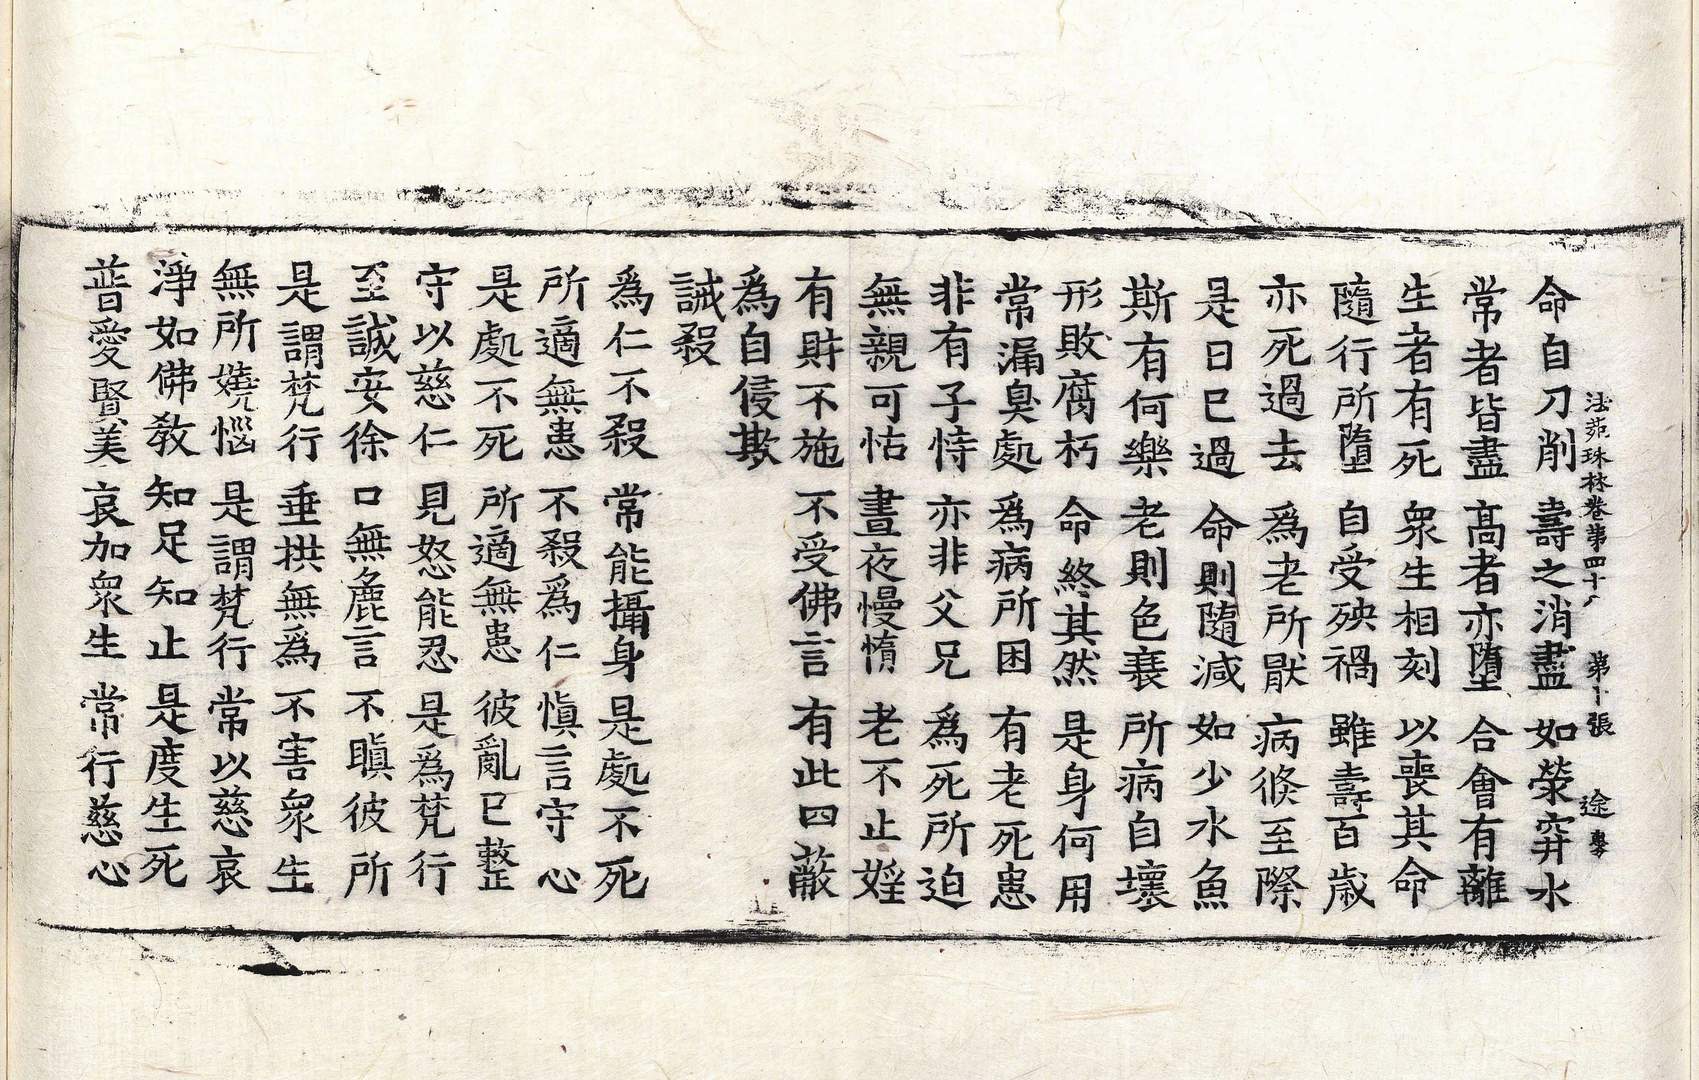 法苑珠林卷第四十八　第十張　途
命自刀削　壽之消盡　如滎穽水
常者皆盡　高者亦墮　合會有離
生者有死　衆生相刻　以喪其命
隨行所墮　自受殃禍　雖壽百歲
亦死過去　爲老所猒　病條至際
是日已過　命則隨減　如少水魚
斯有何樂　老則色衰　所病自壞
形敗腐朽　命終其然　是身何用
常漏臭處　爲病所困　有老死患
非有子恃　亦非父兄　爲死所迫
無親可怙　晝夜慢惰　老不止婬
有財不施　不受佛言　有此四蔽
爲自侵欺
誡殺
爲仁不殺　常能攝身　是處不死
所適無患　不殺爲仁　愼言守心
是處不死　所適無患　彼亂已整
守以慈仁　見怒能忍　是爲梵行
至誠安徐　口無麁言　不瞋彼所
是謂梵行　垂拱無爲　不害衆生
無所嬈惱　是謂梵行　常以慈哀
淨如佛教　知足知止　是度生死
普愛賢美　哀加衆生　常行慈心